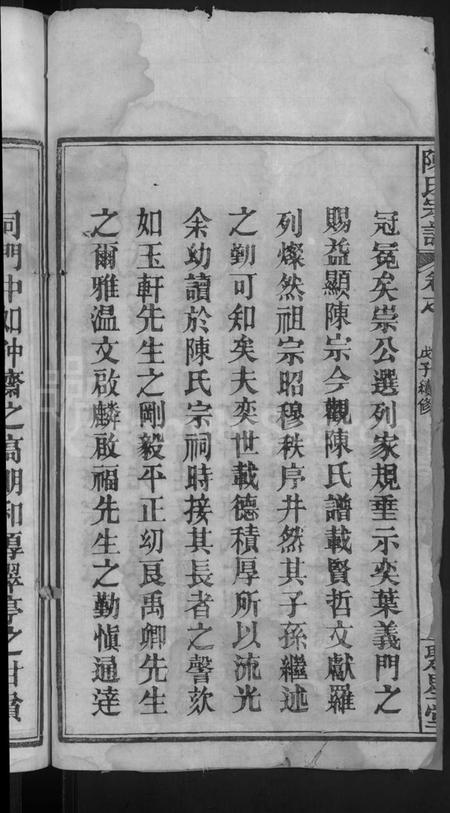 陳氏宗譜
卷之
戊子續修
聚星堂
冠冕矣崇公選列家規垂示奕葉義門之
賜益顯陳宗今觀陳氏譜載賢哲文獻羅
列燦然祖宗昭穆秩序井然其子孫繼述
之勤可知矣夫奕世載德積厚所以流光
余幼讀於陳氏宗祠時接其長者之謦欬
如玉軒先生之剛毅平正㓜良禹卿先生
之爾雅温文啟麟啟福先生之勤慎通達
同門中如仲齋之高朗和厚翠亭之甘賞